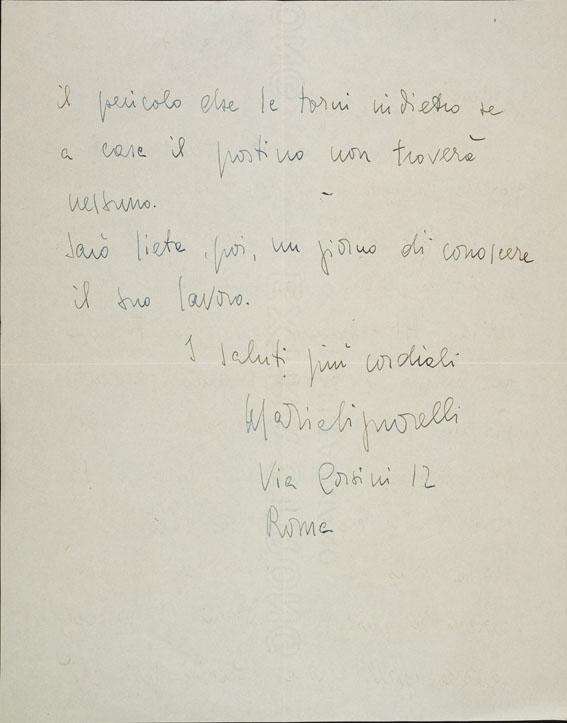 il pericolo che le torni indietro se
a casa il postino non troverà
nessuno.
Sarò lieta, poi, un giorno di conoscere
il suo lavoro.
I saluti più cordiali
Maria Signorelli
Via Corsini 12
Roma